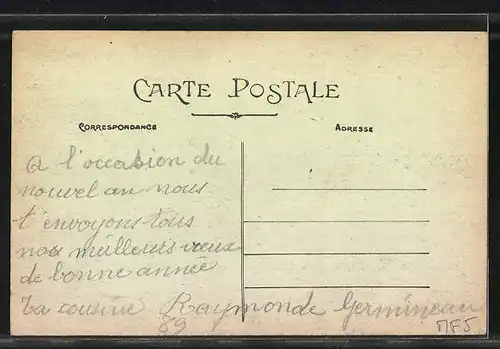 CARTE POSTALE
CORRESPONDANCE
ADRESSE
A l'occasion du
nouvel an nous
t'envoyons tous
nos meilleurs vœux
de bonne année
Ta cousine Raymonde Germineau
89
MF5